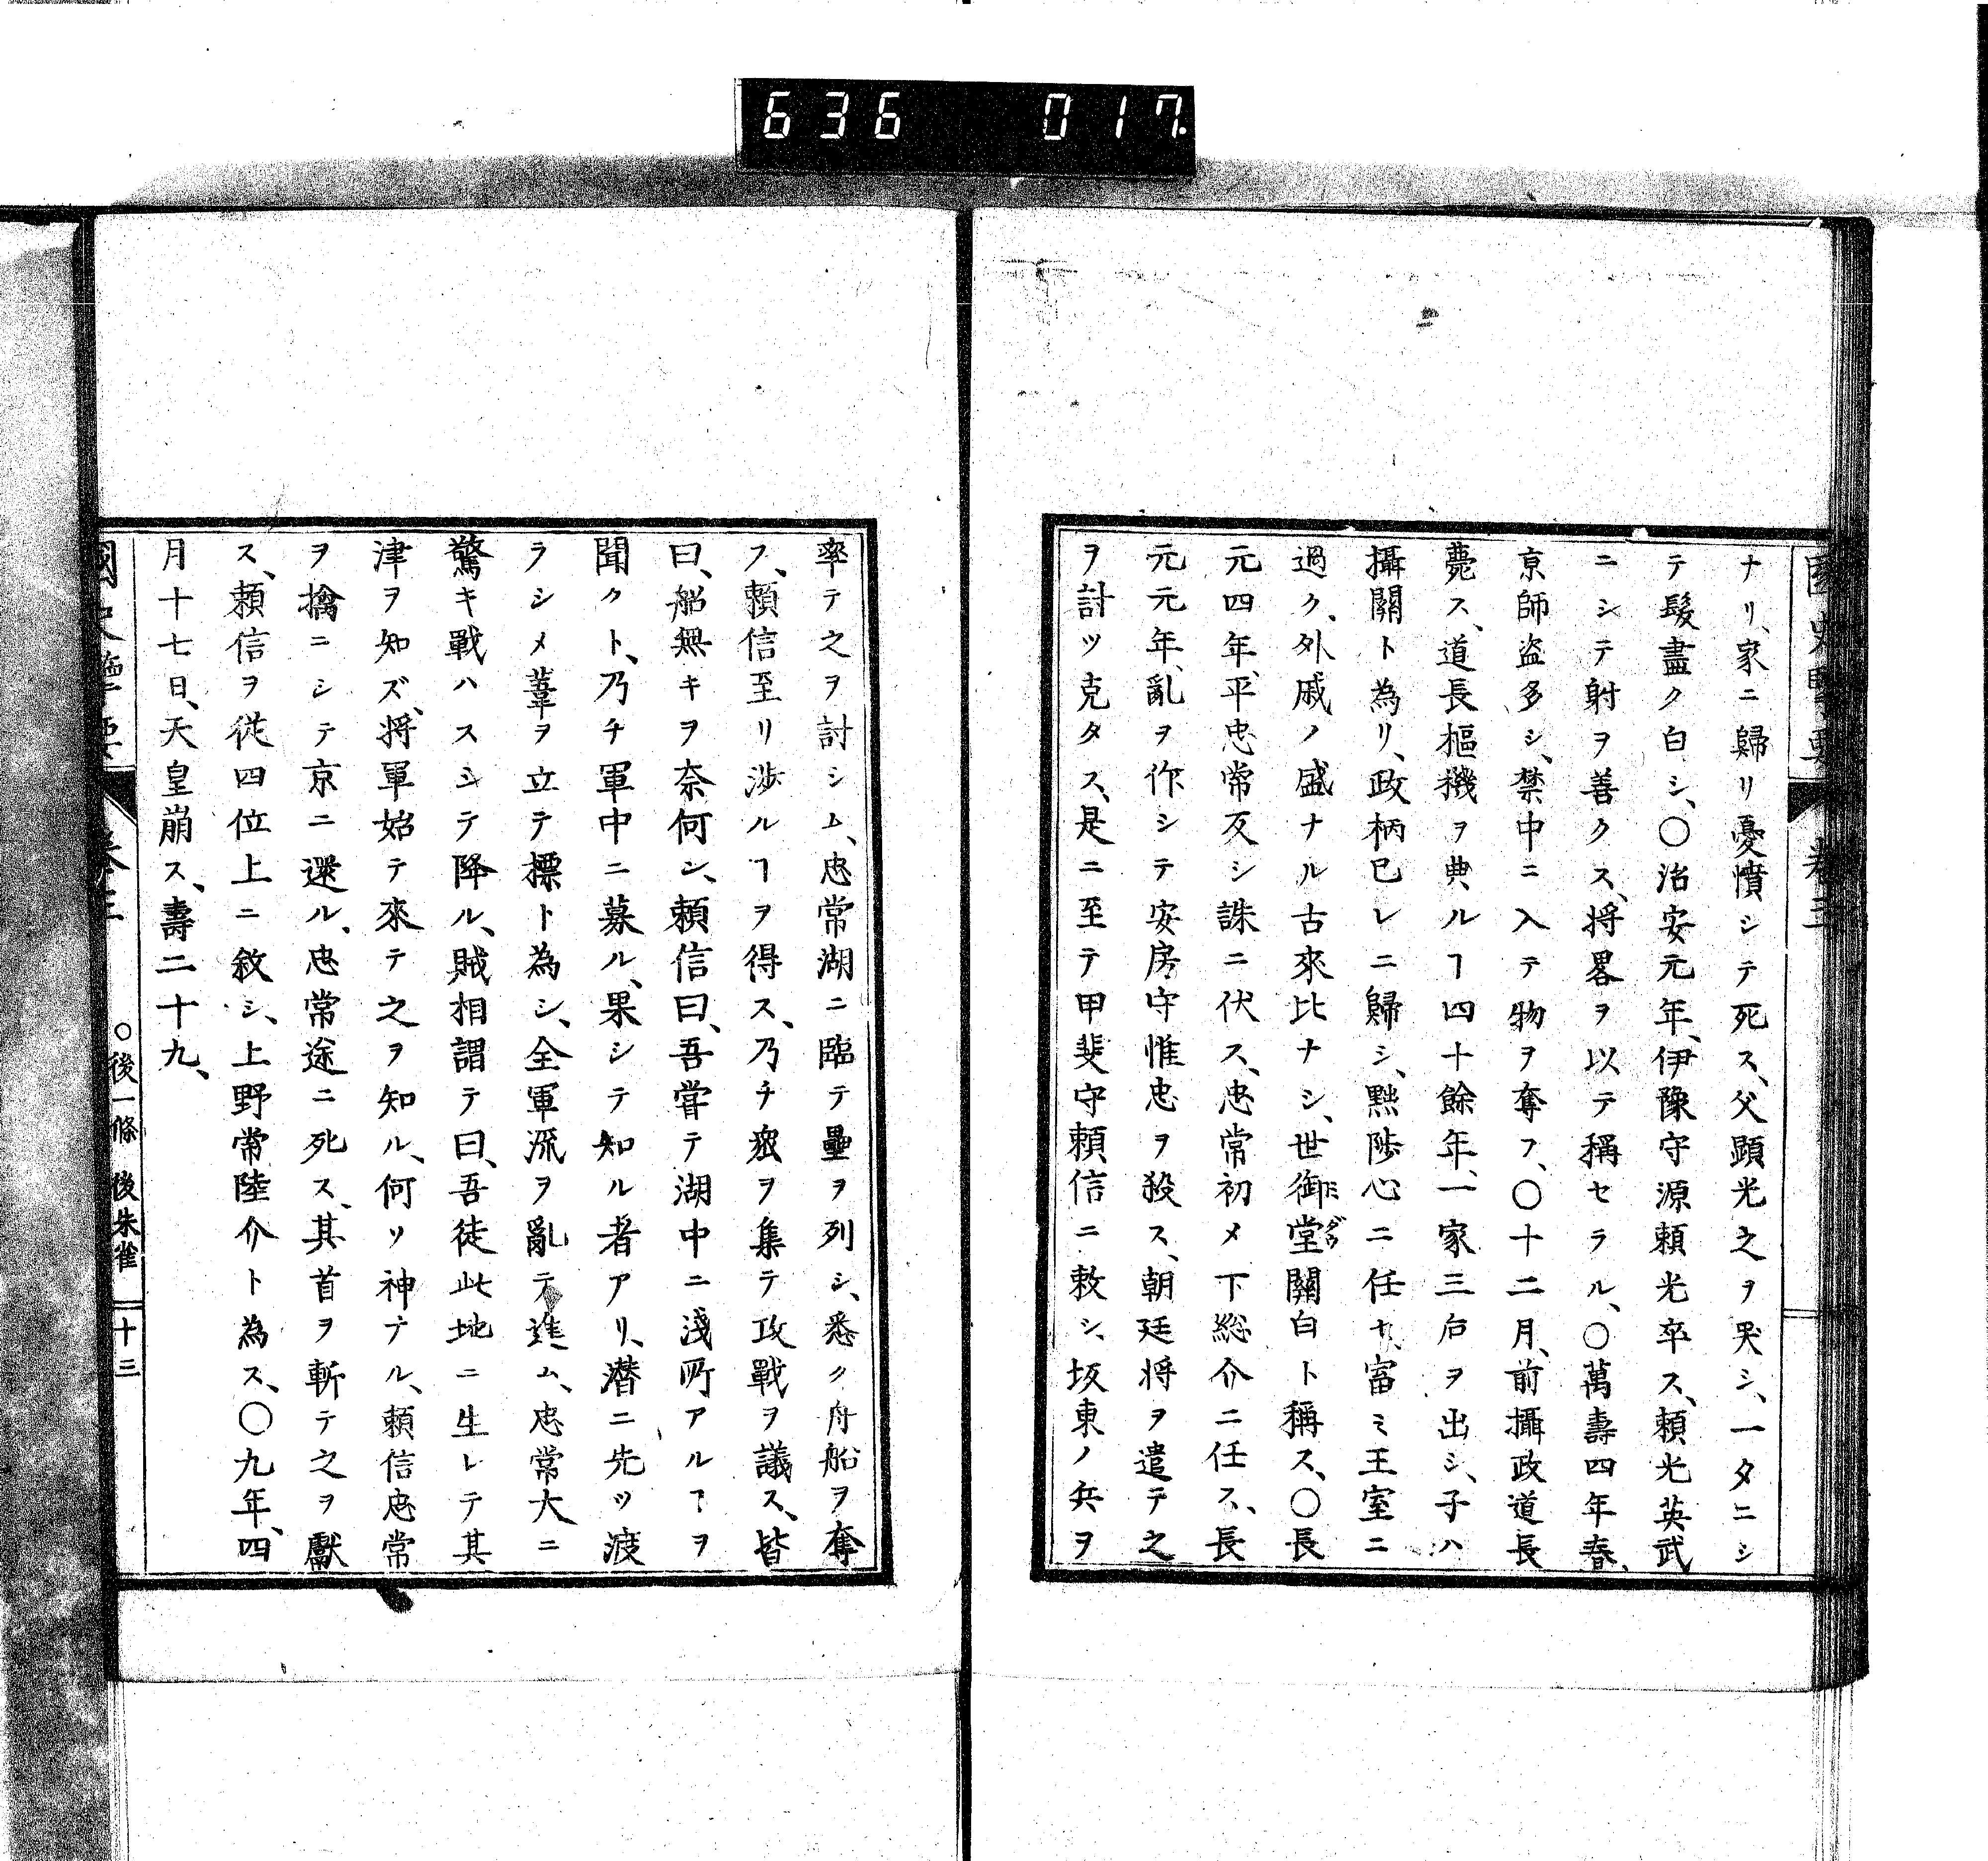 636 017
ナリ、家ニ歸リ憂憤シテ死ス、父顕光之ヲ哭シ、一タニシ
テ髮盡ク白シ、〇治安元年、伊豫守源頼光卒ス、頼光英武
ニシテ射ヲ善クス、将畧ヲ以テ稱セラル、〇萬壽四年春、
京師盗多シ、禁中ニ入テ物ヲ奪フ、〇十二月、前攝政道長
薨ス、道長樞機ヲ典ルヿ四十餘年、一家三后ヲ出シ、子ハ
攝關ト為リ、政柄已レニ歸シ、黜陟心ニ任セ、富ミ王室ニ
過ク、外戚ノ盛ナル古來比ナシ、世御堂關白ト稱ス、〇長
元四年、平忠常反シ誅ニ伏ス、忠常初メ下総介ニ任ス、長
元元年、亂ヲ作シテ安房守惟忠ヲ殺ス、朝廷将ヲ遣テ之
ヲ討ツ克タス、是ニ至テ甲斐守頼信ニ敕シ、坂東ノ兵ヲ
率テ之ヲ討シム、忠常湖ニ臨テ壘ヲ列シ、悉ク舟船ヲ奪
フ、頼信至リ渉ルヿヲ得ス、乃チ衆ヲ集テ攻戰ヲ議ス、皆
曰、船無キヲ奈何ン、頼信曰、吾甞テ湖中ニ淺所アルヿヲ
聞クト、乃チ軍中ニ募ル、果シテ知ル者アリ、潜ニ先ツ渡
ラシメ葦ヲ立テ標ト為シ、全軍流ヲ亂テ進ム、忠常大ニ
驚キ戰ハスシテ降ル、賊相謂テ曰、吾徒此地ニ生レテ其
津ヲ知ズ、将軍始テ來テ之ヲ知ル、何ソ神ナル、頼信忠常
ヲ擒ニシテ京ニ還ル、忠常途ニ死ス、其首ヲ斬テ之ヲ獻
ス、頼信ヲ従四位上ニ敘シ、上野常陸介ト為ス、〇九年、四
月十七日、天皇崩ス、壽二十九、
〇後一條 後朱雀 十三